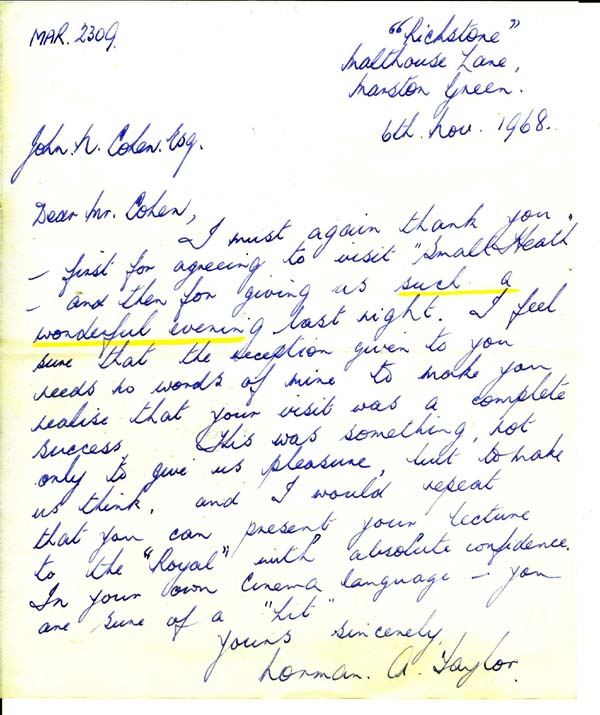 MAR. 2309.
"Richstone"
Malthouse Lane,
Marston Green.
6th. Nov. 1968.
John. N. Cohen. Esq.
Dear Mr. Cohen,
I must again thank you
– first for agreeing to visit "Small Heath"
– and then for giving us such a
wonderful evening last night. I feel
sure that the reception given to you
needs no words of mine to make you
realise that your visit was a complete
success. This was something, not
only to give us pleasure, but to make
us think, and I would repeat
that you can present your lecture
to the "Royal" with absolute confidence.
In your own Cinema language – you
are sure of a "hit"
Yours sincerely,
Norman. A. Taylor.